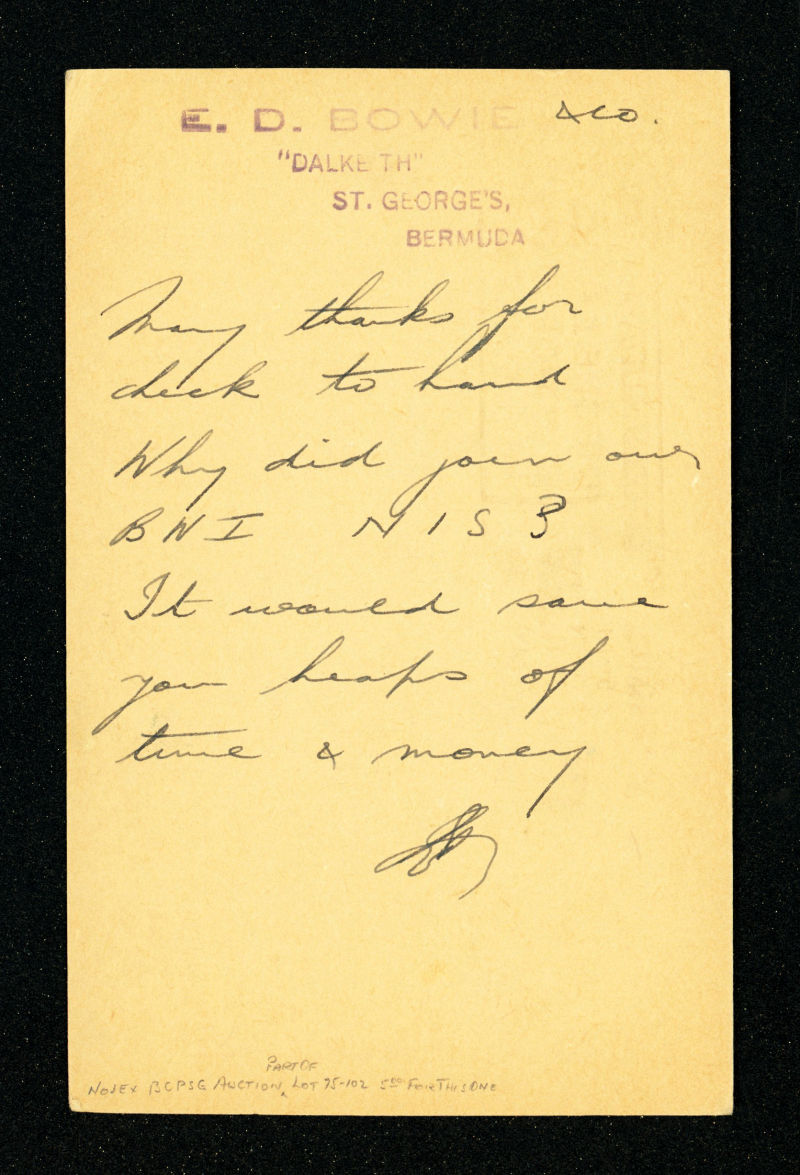 E. D. BOWIE &CO.
"DALKEITH"
ST. GEORGE'S,
BERMUDA
Many thanks for
check to hand
Why did join our
BWI NIS
It would save
you heaps of
time & money
PART OF
NOJEX BCPSG AUCTION, LOT 75-102 5.00 FOR THIS ONE